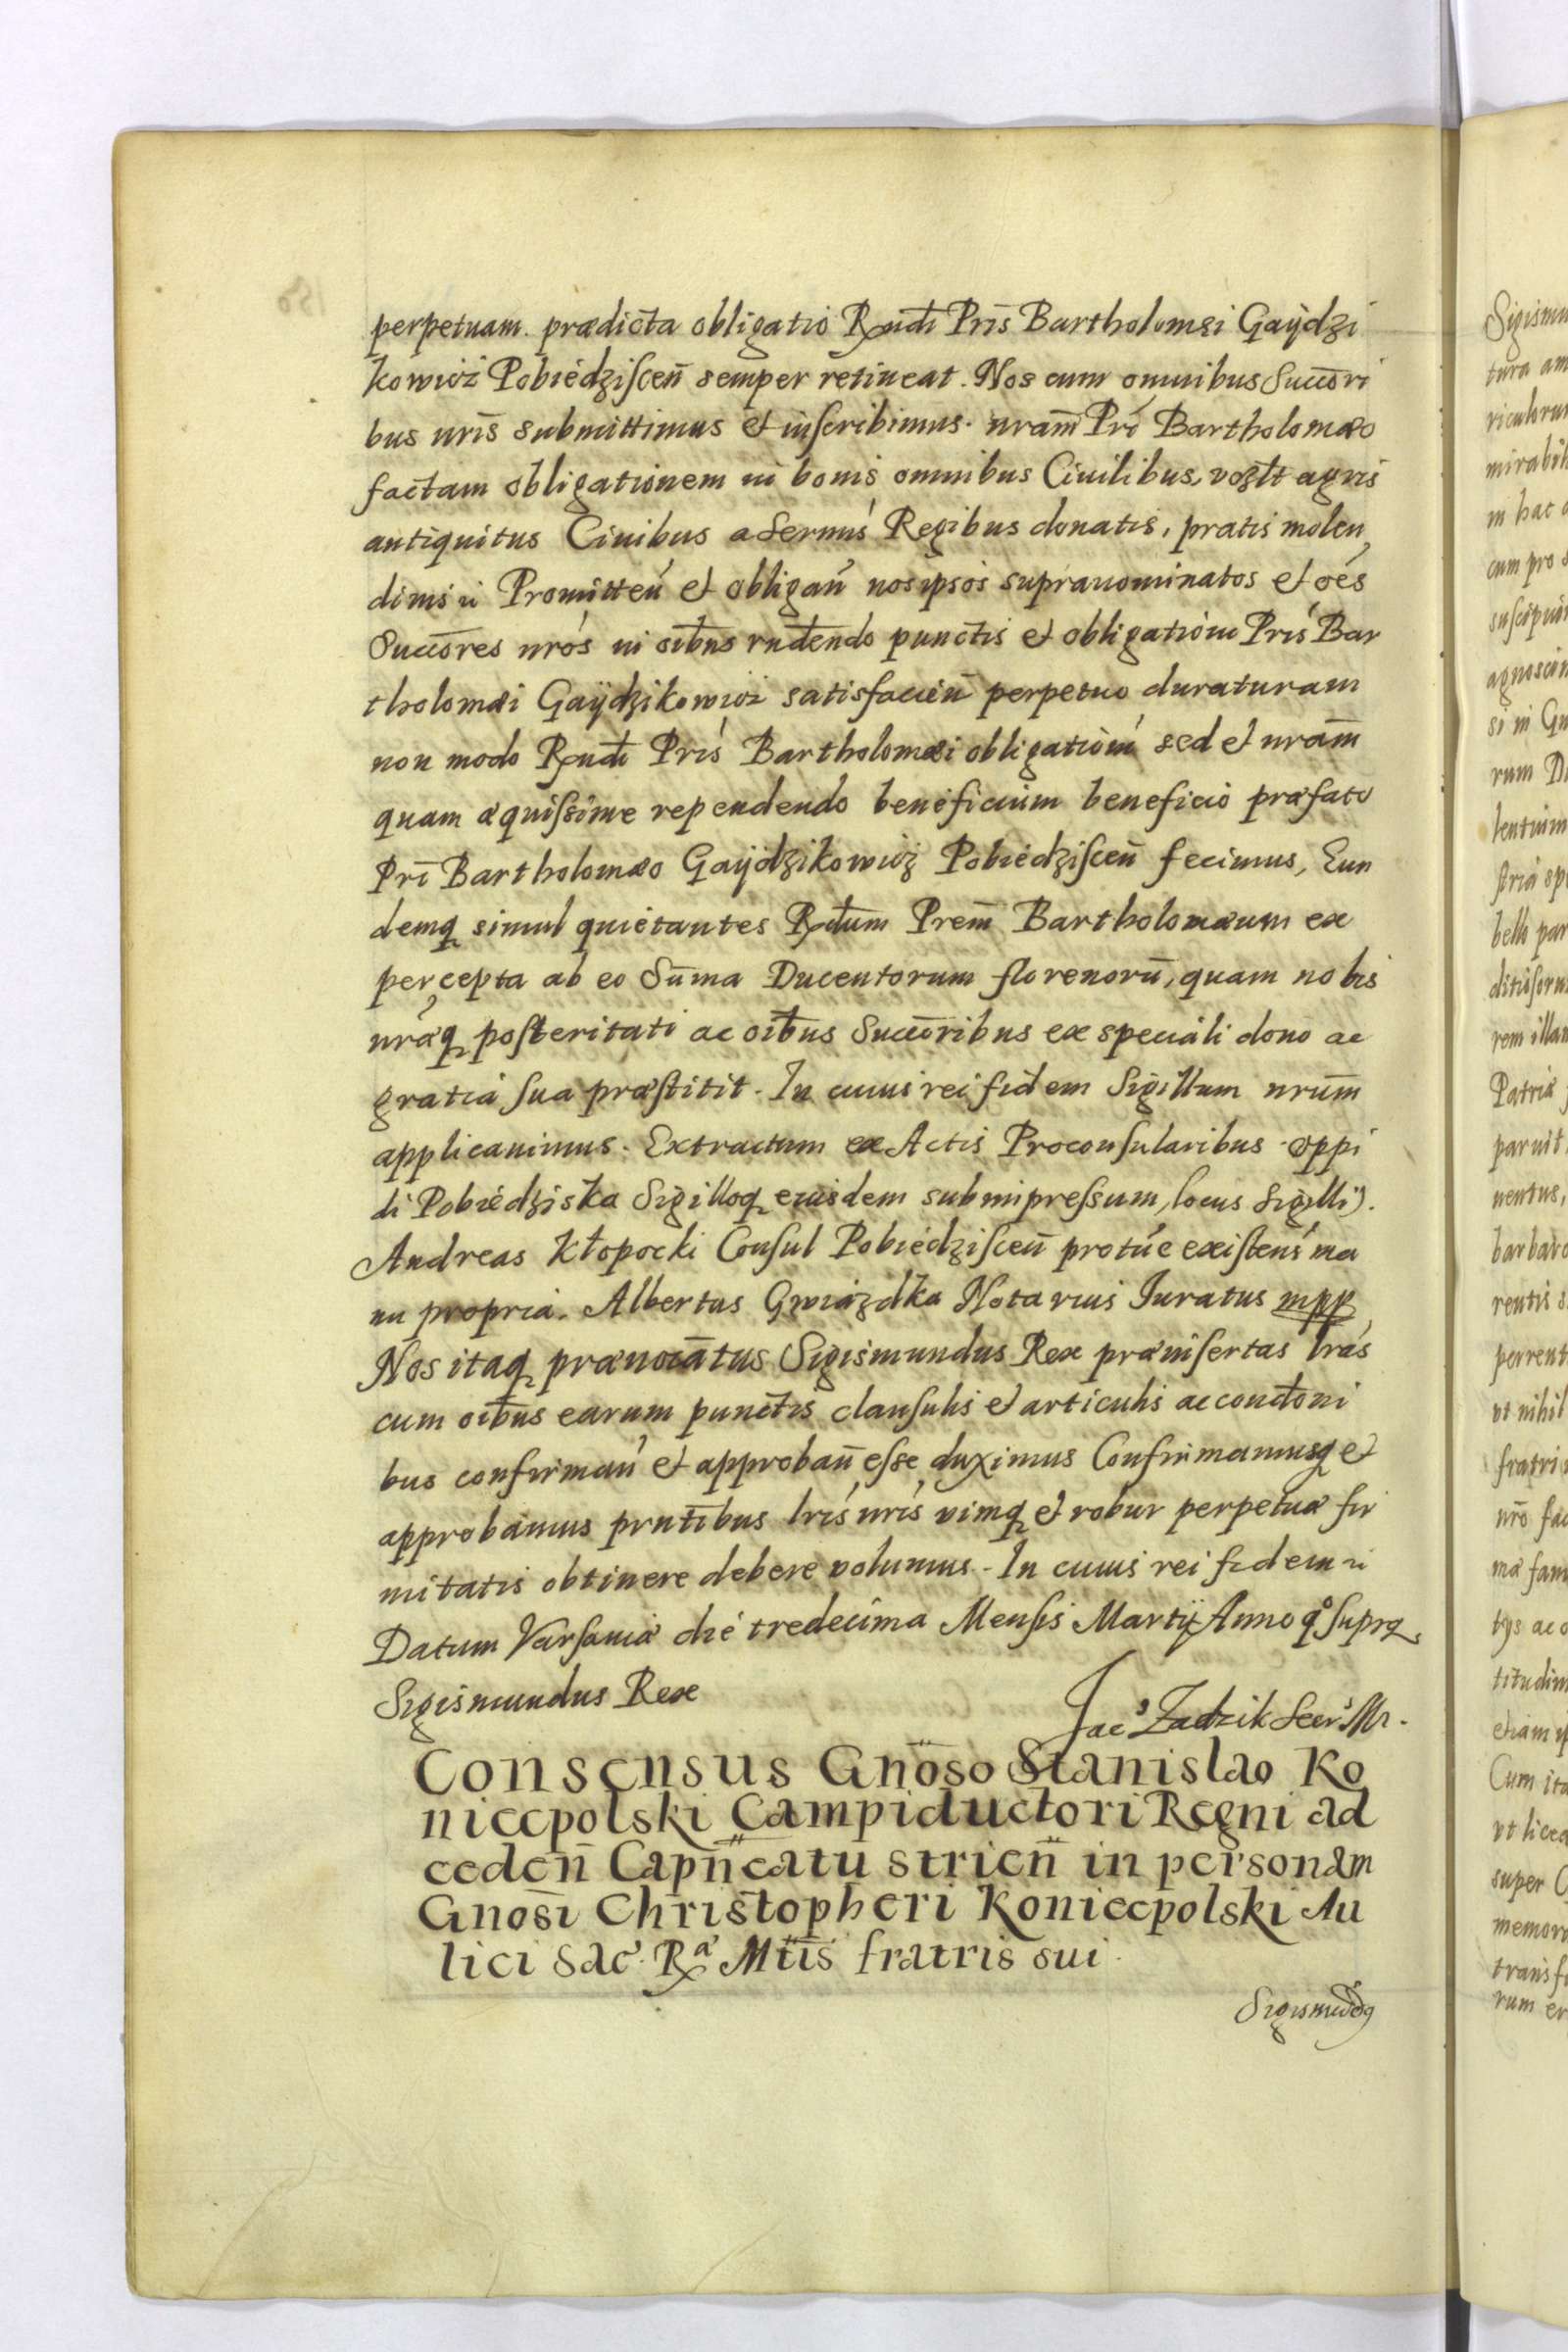 perpetuam. prædicta obligatio Rx̄ndi Prĩs Bartholomæi Gaÿdzi
kowicz Pobiedziſceñ semper retineat. Nos cum omnibus Succōri
bus nrĩs submittimus et inſcribimus. nram̄ Pri Bartholomæo
factam obligationem in bonis omnibus Ciuilibus, vꝫlt agris
antiquitus Ciuibus a Sermis Regibus donatis, pratis molen
dinis Promitteñ et obligañ nos ipsos supranominatos et oēs
Succōres nros in oĩbus rndendo punctis et obligationi Pris Bar
tholomæi Gaÿdzikowicz satisfacieñ perpetuo duraturam
non modo Rx̄ndi Pris Bartholomæi obligationem sed et nram̄
quam æquiſsime rependendo beneficium beneficio præfato
Pri Bartholomæo Gaÿdzikowicz Pobiedziſceñ fecimus, Eun
demq simul quietantes Rx̄dum Prem̄ Bartholomæum ex
percepta ab eo Sūma Ducentorum florenorū, quam nobis
nræq poſteritati ac oĩbus Succōribus ex speciali dono ac
gratia ſua præſtitit. In cuius rei fidem Sigillum nrum̄
applicauimus. Extractum ex Actis Proconſularibus oppi
di Pobiedziska Sigilloq eiusdem subimpreſsum, locus Sigilli).
Andreas Kłopocki Conſul Pobiedziſceñ protūe exiſtens ma
nu propria. Albertus Gwiazdka Notarius Iuratus mpp
Nos itaq prænoiātus Sigismundus Rex præinſertas lrās
cum oĩbus earum punctis clauſulis et articulis ac condtoni
bus confirmañ et approbañ eſse duximus Confirmamusq et
approbamus pnttĩbus lris nris vimq et robur perpetuæ fir
mitatis obtinere debere volumus. In cuius rei fidem
Datum Varſauiæ die tredecima Menſis Martij Anno qo ſupra
Sigismundus Rex
Jac' Zadzik Secr' Mr.
Consensus Gnōso Stanislao Ko
niecpolski Campiductori Regni ad
cedeñ Capñeatu strieñ in personam
Gnosi Christopheri Koniecpolski Au
lici Sac. Rx Mtis fratris sui
Sigismūdꝰ